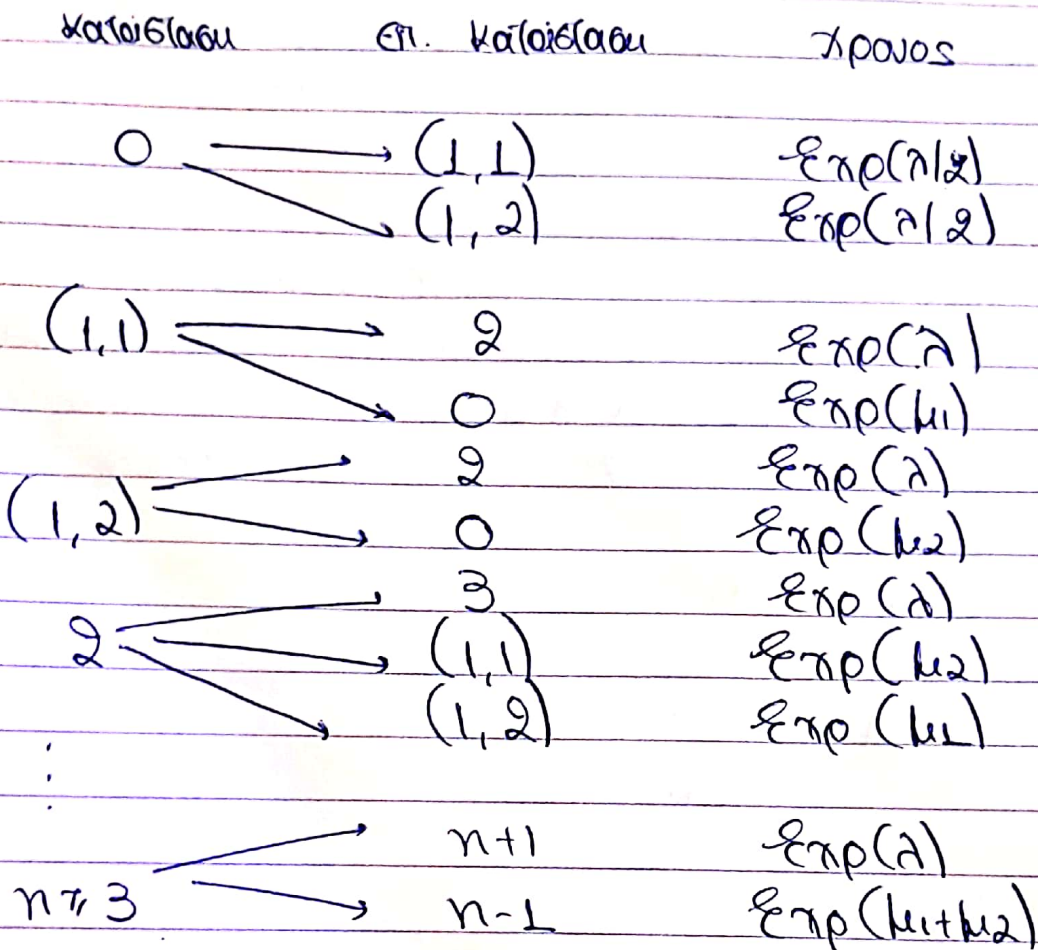 κατάσταση επ. κατάσταση χρονος
0 → (1,1) Exp(λ/2)
→ (1,2) Exp(λ/2)
(1,1) → 2 Exp(λ)
→ 0 Exp(μ1)
(1,2) → 2 Exp(λ)
→ 0 Exp(μ2)
2 → 3 Exp(λ)
→ (1,1) Exp(μ2)
→ (1,2) Exp(μ1)
⋮
n≥3 → n+1 Exp(λ)
→ n-1 Exp(μ1+μ2)